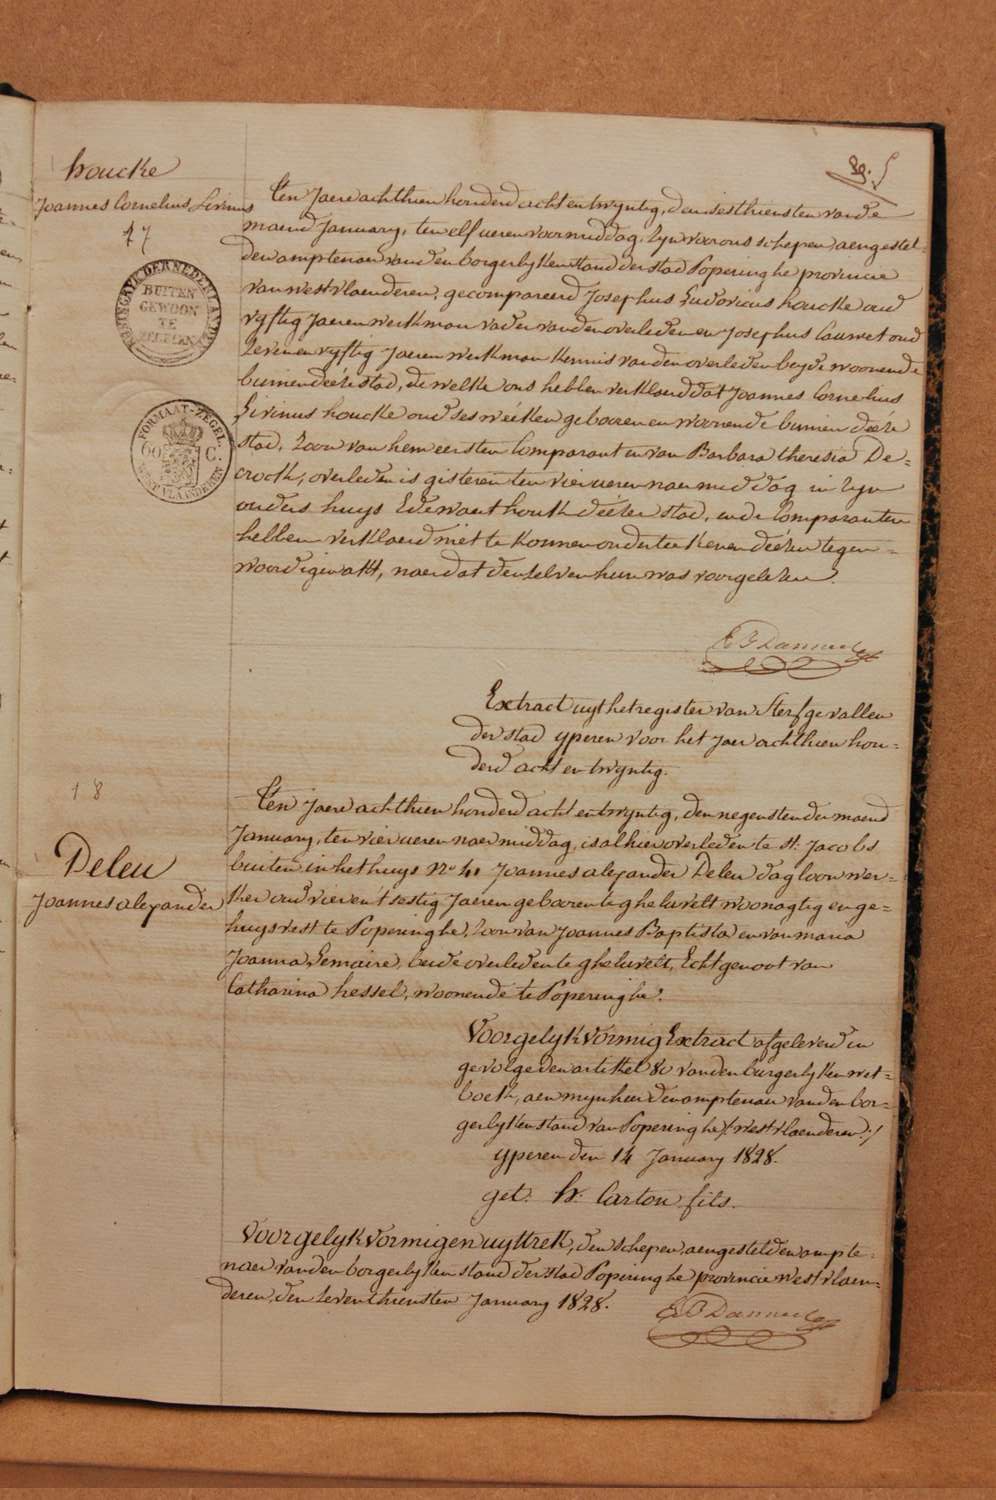 houcke
Joannes Cornelius Livinus
17
KONINGRYK DER NEDERLANDEN
BUITEN
GEWOON
TE
ZEGELEN
FORMAAT-ZEGEL
60 C.
WEST VLAANDEREN
Ten Jaere achthien honderd acht en twyntig, den sesthiensten van de
maend January, ten elf ueren voormiddag, zyn voor ons schepen, aengestel-
den amptenaer van den borgerlyken stand der stad Poperinghe provincie
van westvlaenderen, gecompareerd Josephus Ludovicus houcke oud
vyftig Jaeren werkman vader van den overleden en Josephus Cauwet oud
zeven en vyftig Jaeren werkman kennis van den overleden beyde woonende
binnen deéze stad, de welke ons hebben verklaerd dat Joannes Cornelius
Livinus houcke oud ses wéeken gebooren en woonende binnen deéze
stad, Zoon van hem eersten Comparant en van Barbara theresia De-
croock, overleden is gisteren ten vier ueren naermiddag in zyn
ouders huys Edewaerthoek deézer stad, en de Comparanten
hebben verklaerd niét te konnen onderteekenen deézen tegen-
woordigen akt, naer dat den zelven hun was voorgelezen.
Extract uyt het register van Sterfgevallen
der stad yperen voor het Jaer achthien hon-
derd acht en twyntig.
18
Deleu
Joannes alexander
Ten Jaere achthien honderd acht en twyntig, den negensten der maend
January, ten vier ueren naermiddag, is alhier overleden te St. Jacobs
buiten in het huys No 41 Joannes alexander Deleu dagloonwer-
ker oud vier en t sestig Jaeren gebooren te gheluvelt woonagtig en ge-
huysvest te Poperinghe, Zoon van Joannes Baptista en van maria
Joanna Lemaire, beide overleden te gheluvelt, Echtgenoot van
Catharina hessel, woonende te Poperinghe.
Voorgelykvormig Extract afgeleverd in
gevolge den artikel 80 van den burgerlyken wet-
boek, aen mynheer den amptenaer van den bor-
gerlyken stand van Poperinghe /: westvlaenderen :/
yperen den 14 January 1828.
get. h. Carton fils.
Voorgelykvormigen uyttrek, den schepen, aengestelden ampte-
naer van den borgerlyken stand der stad Poperinghe provincie westvlaen-
deren, den zeventhiensten January 1828.